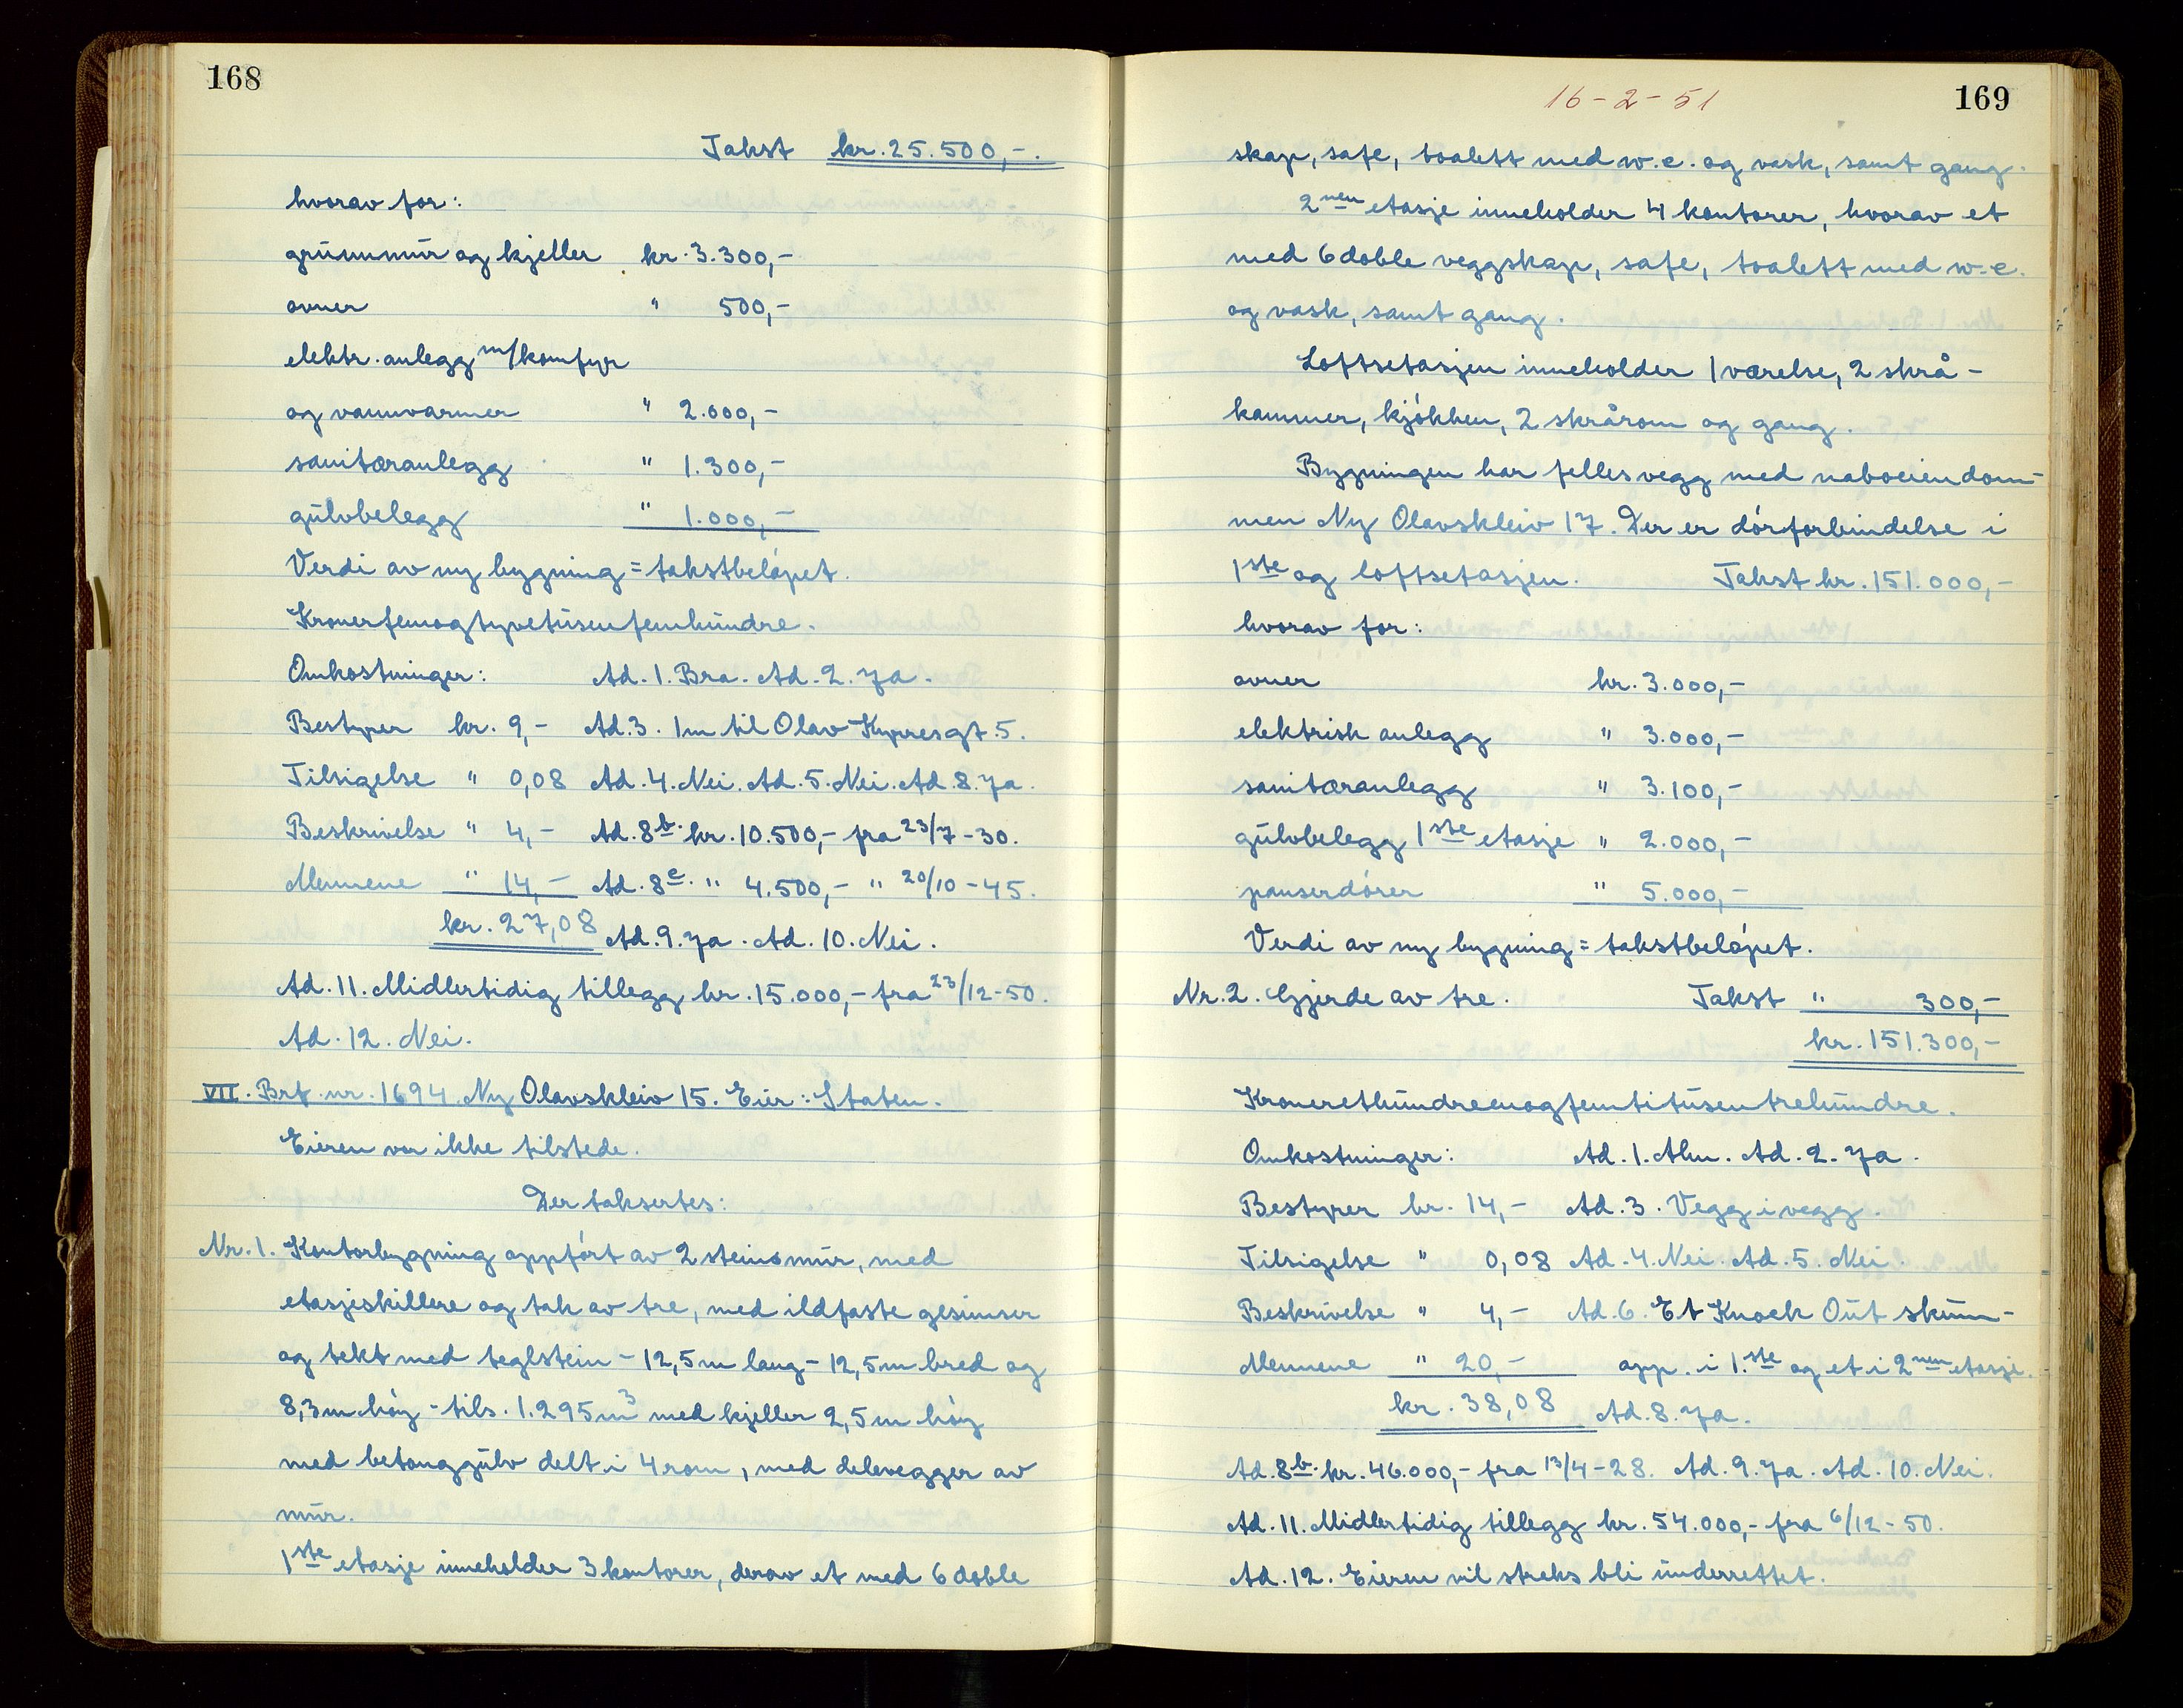 168
Takst kr. 25.500,-.
hvorav for:
grunnmur og kjeller kr. 3.300,-
ovner " 500,-
elektr. anlegg m/komfyr
og vannvarmer " 2.000,-
sanitæranlegg " 1.300,-
gulvbelegg " 1.000,-
Verdi av ny bygning = takstbeløpet.
Kronerfemogtyvetusenfemhundre.
Omkostninger: Ad. 1. Bra. Ad. 2. Ja.
Bestyrer kr. 9,- Ad. 3. 1m til Olav Kyrresgt. 5.
Tilsigelse " 0,08 Ad. 4. Nei. Ad. 5. Nei. Ad. 8. Ja.
Beskrivelse " 4,- Ad. 8b. kr. 10.500,- fra 23/7-30.
Mennene " 14,- Ad. 8c. " 4.500,- " 20/10-45.
kr. 27,08 Ad. 9. Ja. Ad. 10. Nei.
Ad. 11. Midlertidig tillegg kr. 15.000,- fra 23/12-50.
Ad. 12. Nei.
VII. Brt. nr. 1694. Ny Olavskleiv 15. Eier: Staten.
Eieren var ikke tilstede.
Der taksertes:
Nr. 1. Kontorbygning oppført av 2 steins mur, med
etasjeskillere og tak av tre, med ildfaste gesimser
og tekt med teglstein - 12,5m lang - 12,5m bred og
8,3m høy - tils. 1.295m3 med kjeller 2,5m høy
med betonggulv delt i 4 rom, med delevegger av
mur.
1ste etasje inneholder 3 kontorer, derav et med 6 doble
16-2-51
169
skap, safe, toalett med w.c. og vask, samt gang.
2nen etasje inneholder 4 kontorer, hvorav et
med 6 doble veggskap, safe, toalett med w.c.
og vask, samt gang.
Loftsetasjen inneholder 1 værelse, 2 skrå-
kammer, kjøkken, 2 skrårom og gang.
Bygningen har fellesvegg med naboeiendom-
men Ny Olavskleiv 17. Der er dørforbindelse i
1ste og loftsetasjen. Takst kr. 151.000,-
hvorav for:
ovner kr. 3.000,-
elektrisk anlegg " 3.000,-
sanitæranlegg " 3.100,-
gulvbelegg 1ste etasje " 2.000,-
panserdører " 5.000,-
Verdi av ny bygning = takstbeløpet.
Nr. 2. Gjerde av tre. Takst " 300,-
kr. 151.300,-
Kroneretthundreenogfemtitusentrehundre.
Omkostninger: Ad. 1. Alm. Ad. 2. Ja.
Bestyrer kr. 14,- Ad. 3. Vegg i vegg.
Tilsigelse " 0,08 Ad. 4. Nei. Ad. 5. Nei.
Beskrivelse " 4,- Ad. 6. Et Knock Out skum-
Mennene " 20,- app. i 1.ste og et i 2nen etasje.
kr. 38,08 Ad. 8. Ja.
Ad. 8b. kr. 46.000,- fra 13/4-28. Ad. 9. Ja. Ad. 10. Nei.
Ad. 11. Midlertidig tillegg kr. 54.000,- fra 6/12-50.
Ad. 12. Eieren vil straks bli underrettet.